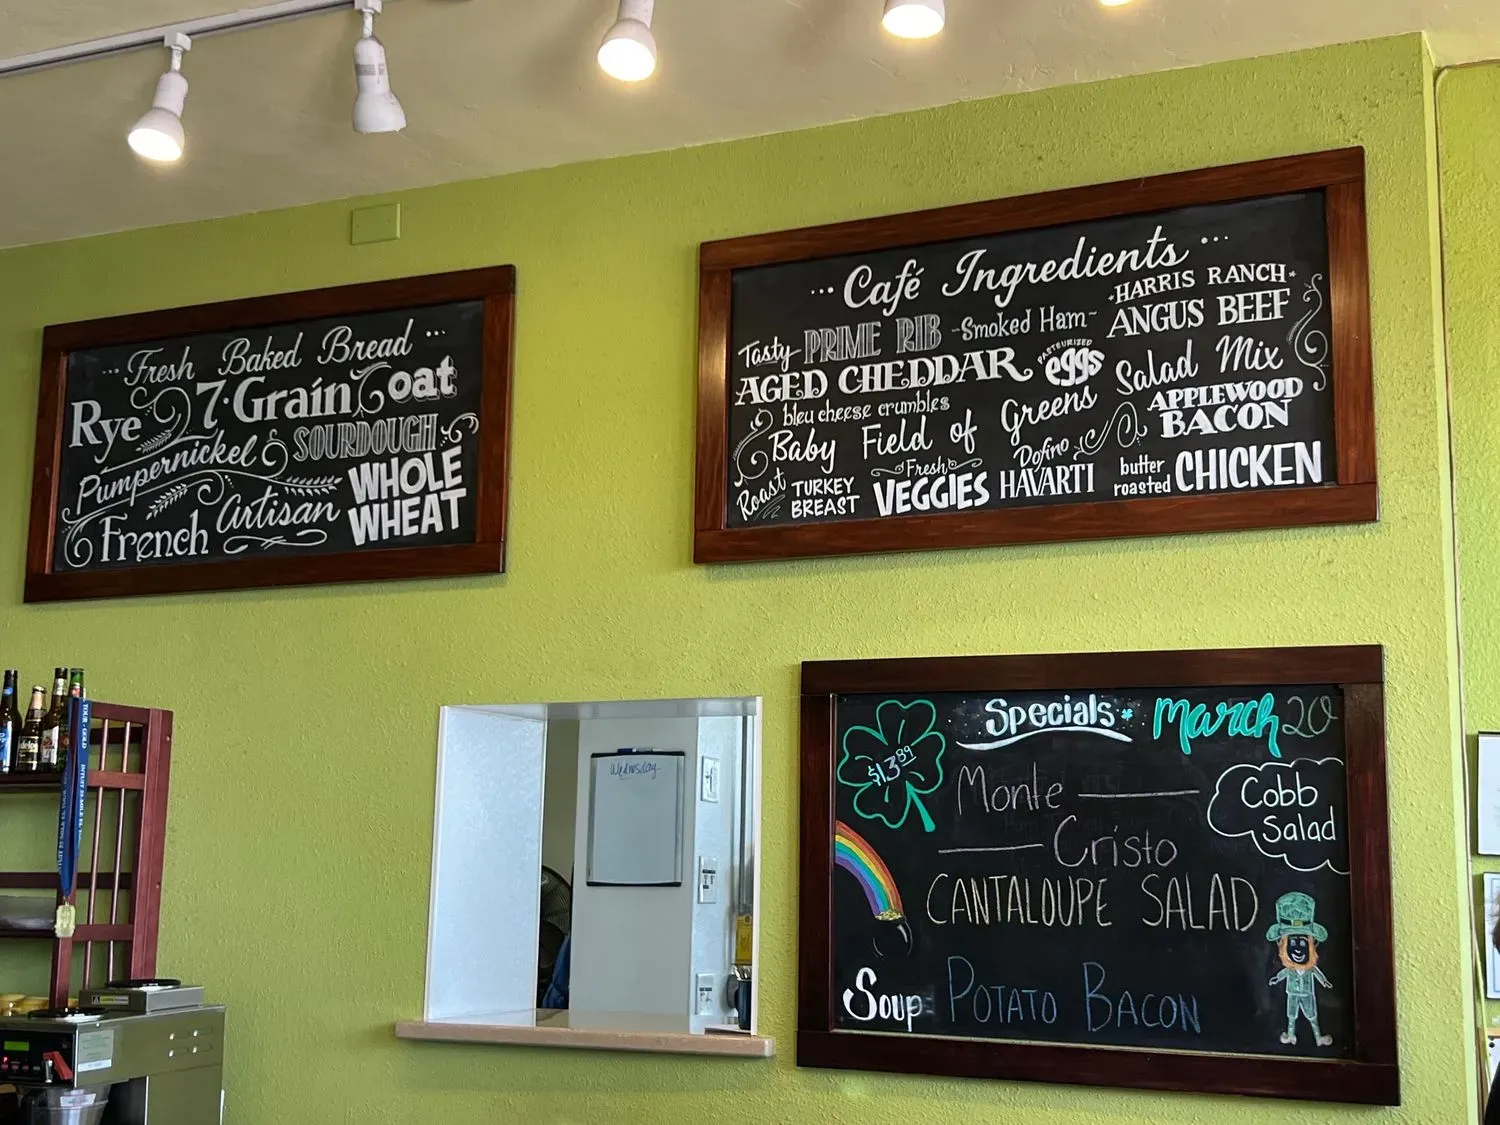 Fresh Baked Bread
Rye 7·Grain oat
Pumpernickel & SOURDOUGH
French Artisan WHOLE WHEAT
Café Ingredients
Tasty PRIME RIB ~Smoked Ham~ HARRIS RANCH
ANGUS BEEF
AGED CHEDDAR PASTEURIZED eggs Salad Mix
bleu cheese crumbles
Baby Field of Greens APPLEWOOD BACON
Roast TURKEY BREAST Fresh VEGGIES Dofino HAVARTI butter roasted CHICKEN
Wednesday
Specials March 20
$13.89
Monte
Cristo
Cobb
Salad
CANTALOUPE SALAD
Soup POTATO BACON